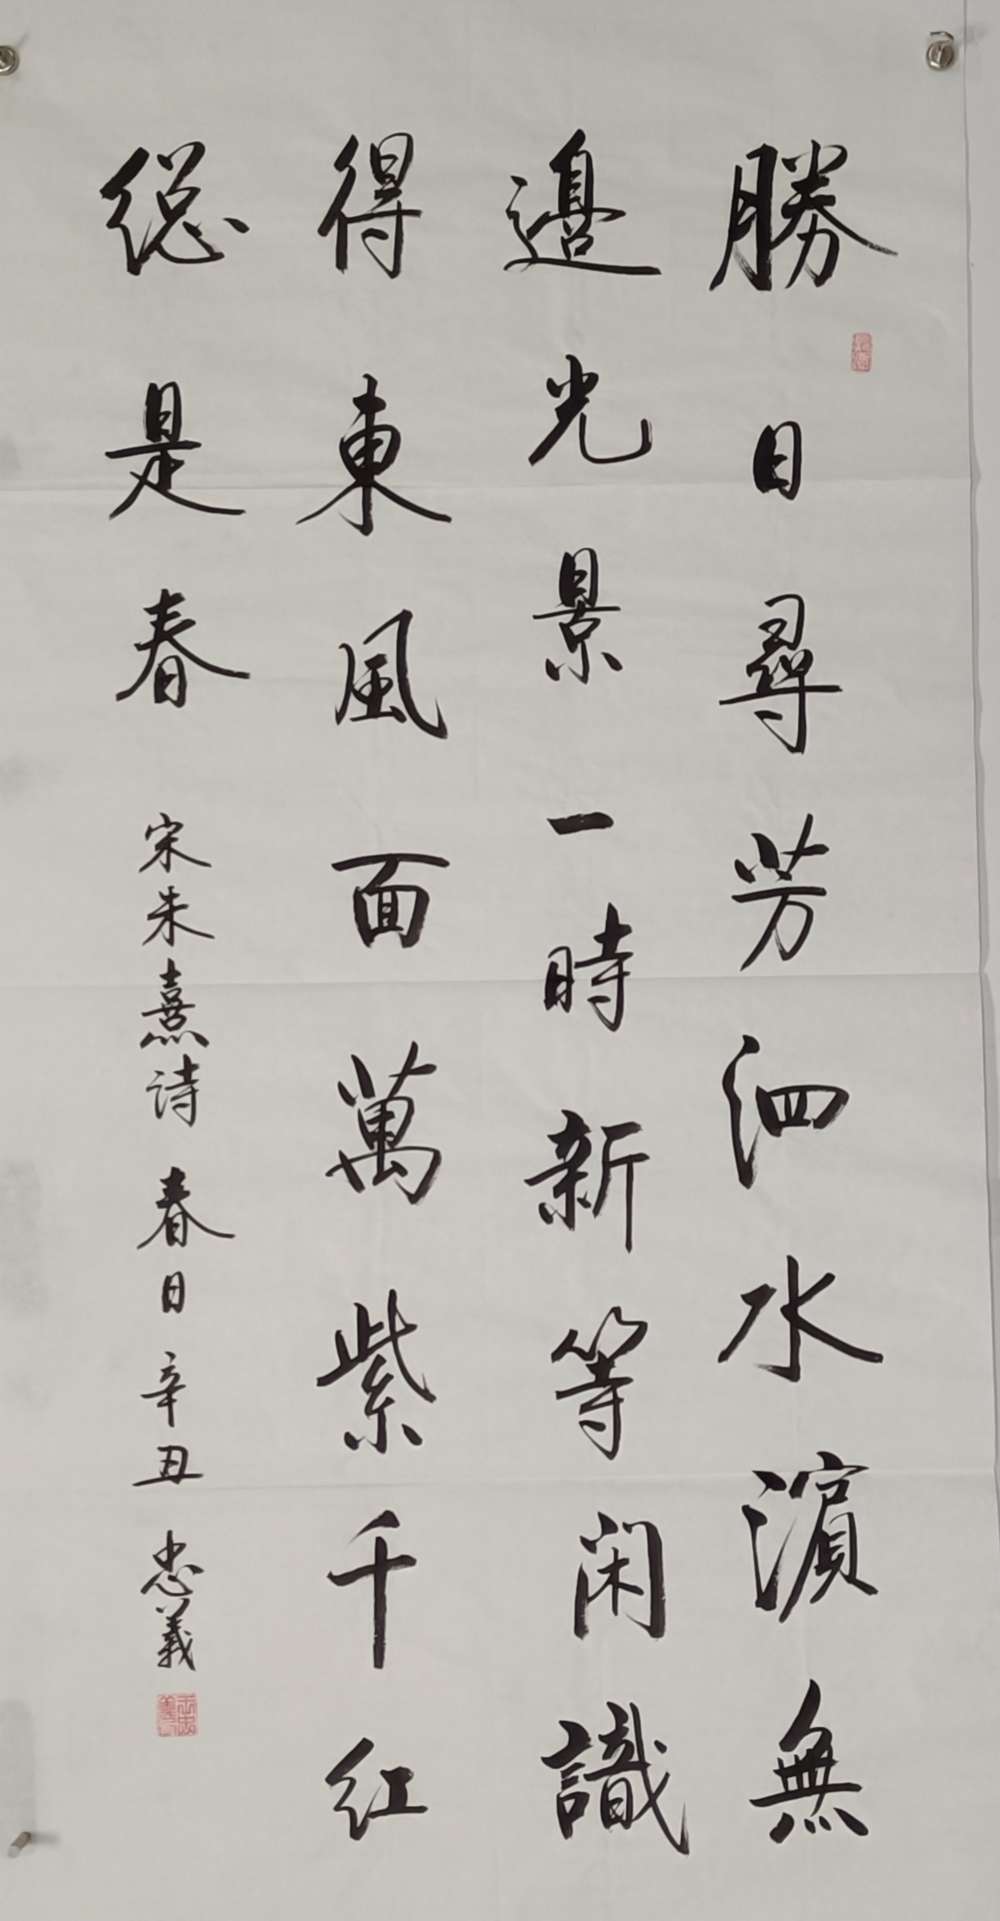 勝日尋芳泗水濵無
邉光景一時新等闲識
得東風面萬紫千红
総是春
宋朱熹诗 春日 辛丑 忠義